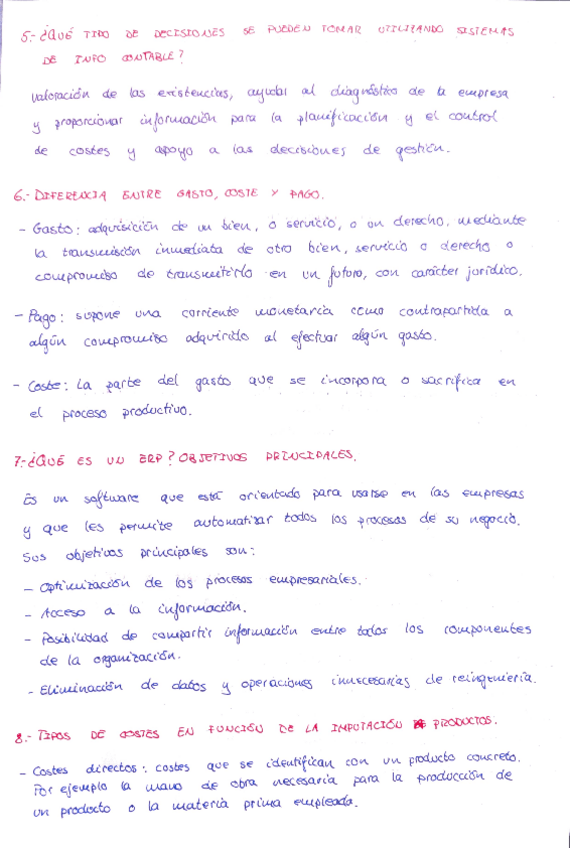 5.- ¿QUÉ TIPO DE DECISIONES SE PUEDEN TOMAR UTILIZANDO SISTEMAS
DE INFO CONTABLE?
Valoración de las existencias, ayudar al diagnóstico de la empresa
y proporcionar información para la planificación y el control
de costes y apoyo a las decisiones de gestión.
6.- DIFERENCIA ENTRE GASTO, COSTE Y PAGO.
- Gasto: adquisición de un bien, o servicio, o un derecho, mediante
la transmisión inmediata de otro bien, servicio o derecho o
compromiso de transmitirlo en un futuro, con carácter jurídico.
- Pago: supone una corriente monetaria como contrapartida a
algún compromiso adquirido al efectuar algún gasto.
- Coste: La parte del gasto que se incorpora o sacrifica en
el proceso productivo.
7.- ¿QUÉ ES UN ERP? OBJETIVOS PRINCIPALES.
Es un software que está orientado para usarse en las empresas
y que les permite automatizar todos los procesos de su negocio.
Sus objetivos principales son:
- Optimización de los procesos empresariales.
- Acceso a la información.
- Posibilidad de compartir información entre todos los componentes
de la organización.
- Eliminación de datos y operaciones innecesarias de reingeniería.
8.- TIPOS DE COSTES EN FUNCIÓN DE LA IMPUTACIÓN PRODUCTOS.
- Costes directos: costes que se identifican con un producto concreto.
Por ejemplo la mano de obra necesaria para la producción de
un producto o la materia prima empleada.